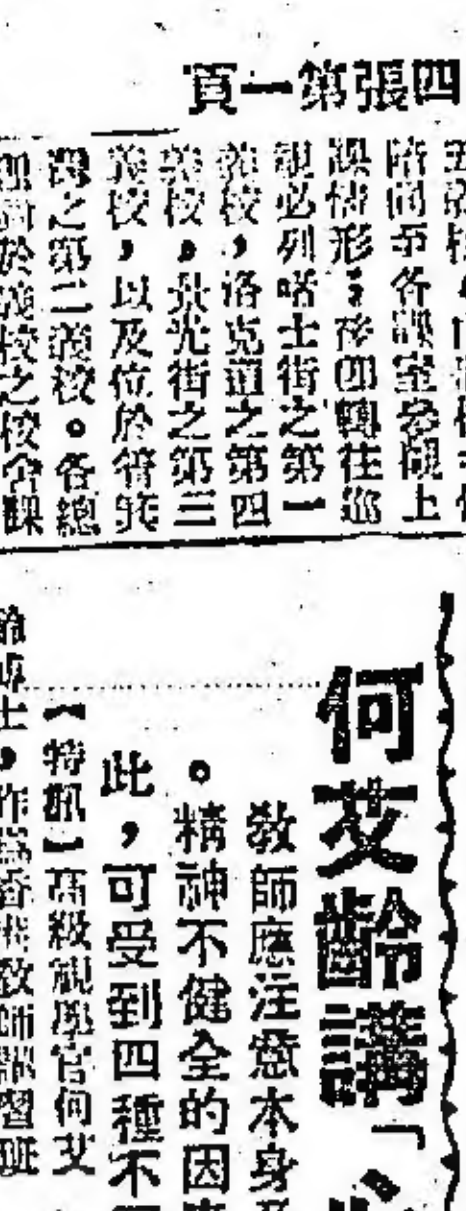 四張第一頁
各課室參觀上
課情形；後即轉往巡
視必列啫士街之第一
義校，洛克道之第四
義校，景光街之第三
義校，以及位於筲箕
灣之第二義校。各總
義校之校舍課
何艾齡講「
教師應注意本身
。精神不健全的因
此，可受到四種不
【特訊】高級視學官何艾
齡博士，作為香港教師講習班